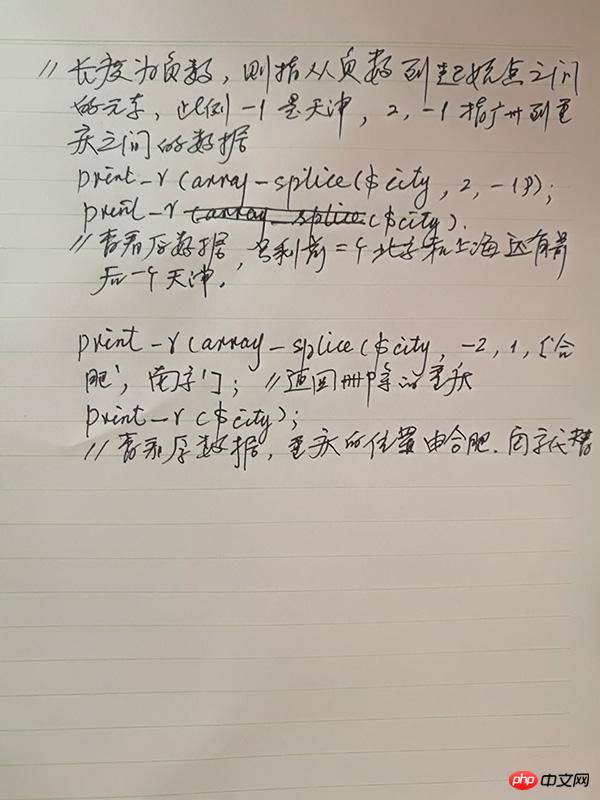 // 长度为负数，则指从负数到起始点之间
的元素，此例 -1 是天津，2，-1 指广州到重
庆之间的数据
print_r (array-splice($city, 2, -1));
print-r (array-splice($city).
// 查看原数据，只剩前二个北京和上海还有最
后一个天津.
print-r (array-splice($city, -2, 1, ['合
肥', '南京']; // 返回删除的重庆
print-r ($city);
// 查看原数据，重庆的位置由合肥.南京代替
php 中文网